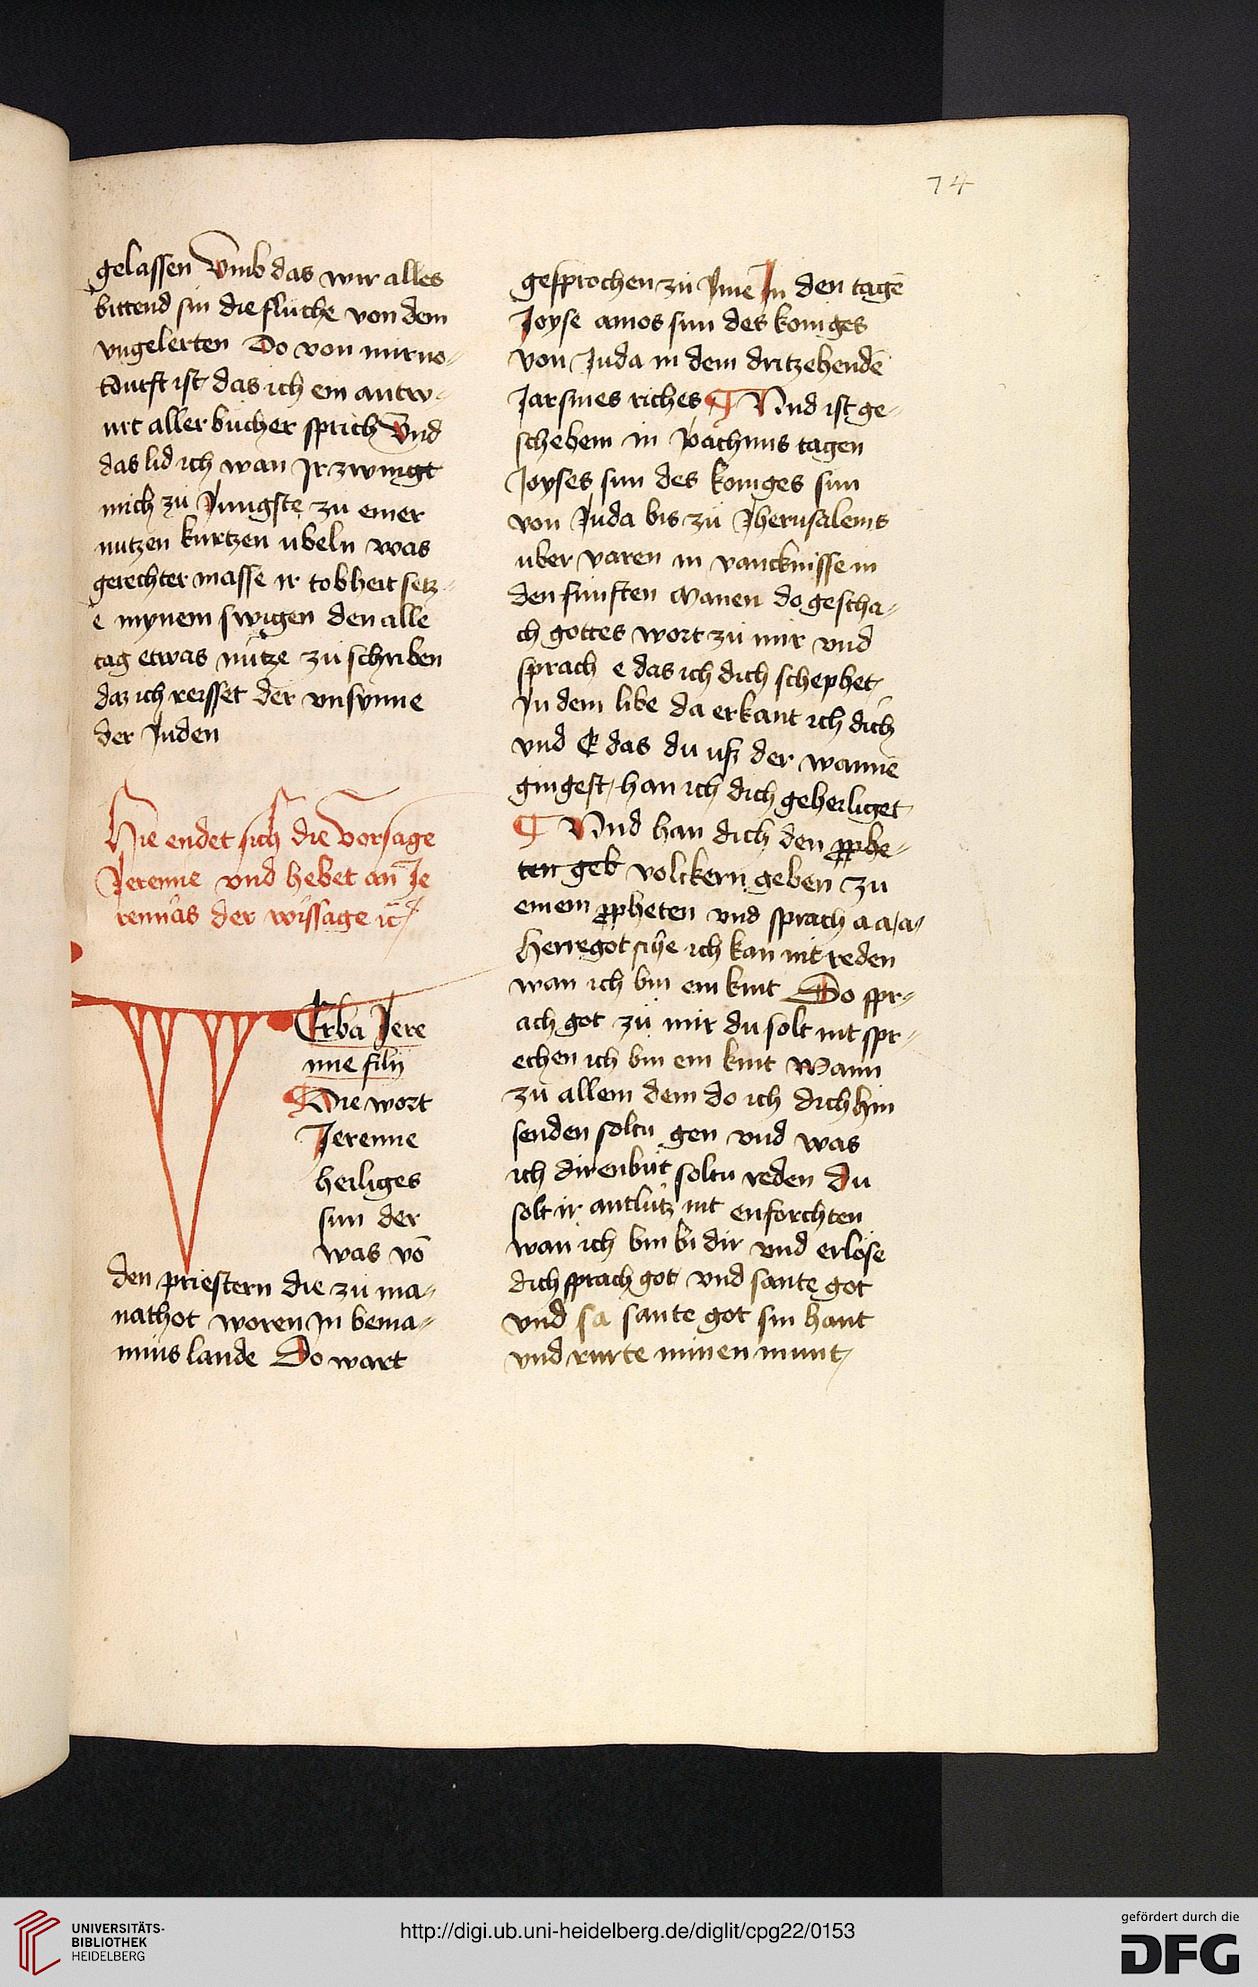 74
gelassen Vmb das wir alles
bittend sin die fluche von dem
vngelerten Do von mir no-
tdurft ist das ich ein antw-
urt aller bucher sprich Vnd
das lid ich wan Ir zwingt
mich zu Jungste zu einer
nutzen kurtzen ubeln was
gerechter masse ir tobheit setz-
e mynem swigen den alle
tag etwas nutze zu schriben
daz ich reisset der vnsynne
der Juden
Hie endet sich die Vorsage
Jeremie vnd hebet an Je
remias der wissage ꝛc
VErba Jere
mie filij
Die wort
Jeremie
heiliges
sun der
was vō
den priestern die zu ma-
nathot woren in bema-
mins lande Do wart
gesprochen zu Ime In den tagē
Joyse amos sun des koniges
von Juda in dem dritzehendē
Jar sines riches Vnd ist ge-
schehem in Vachims tagen
Joyses sun des koniges sun
von Juda bis zu Jherusalems
uber varen in vancknisse in
den funften Manen do gescha-
ch gottes wort zu mir vnd
sprach e das ich dich schephet
In dem libe da erkant ich dich
vnd E das du usz der wannē
gingest han ich dich geheiliget
Vnd han dich den pphe-
ten geb volckern geben zu
einem ppheten vnd sprach a a a
Herregot sihe ich kan nit reden
wan ich bin ein kint Do spr-
ach got zu mir du solt nit spr-
echen ich bin ein kint Wann
zu allem dem do ich dich hin
senden soltu gen vnd was
ich dir enbut soltu reden du
solt ir antlutz nit enforchten
wan ich bin bi dir vnd erlose
dich sprach got vnd sante got
vnd sa sante got sin hant
vnd rurte minen munt
UNIVERSITÄTS-
BIBLIOTHEK
HEIDELBERG
http://digi.ub.uni-heidelberg.de/diglit/cpg22/0153
gefördert durch die
DFG